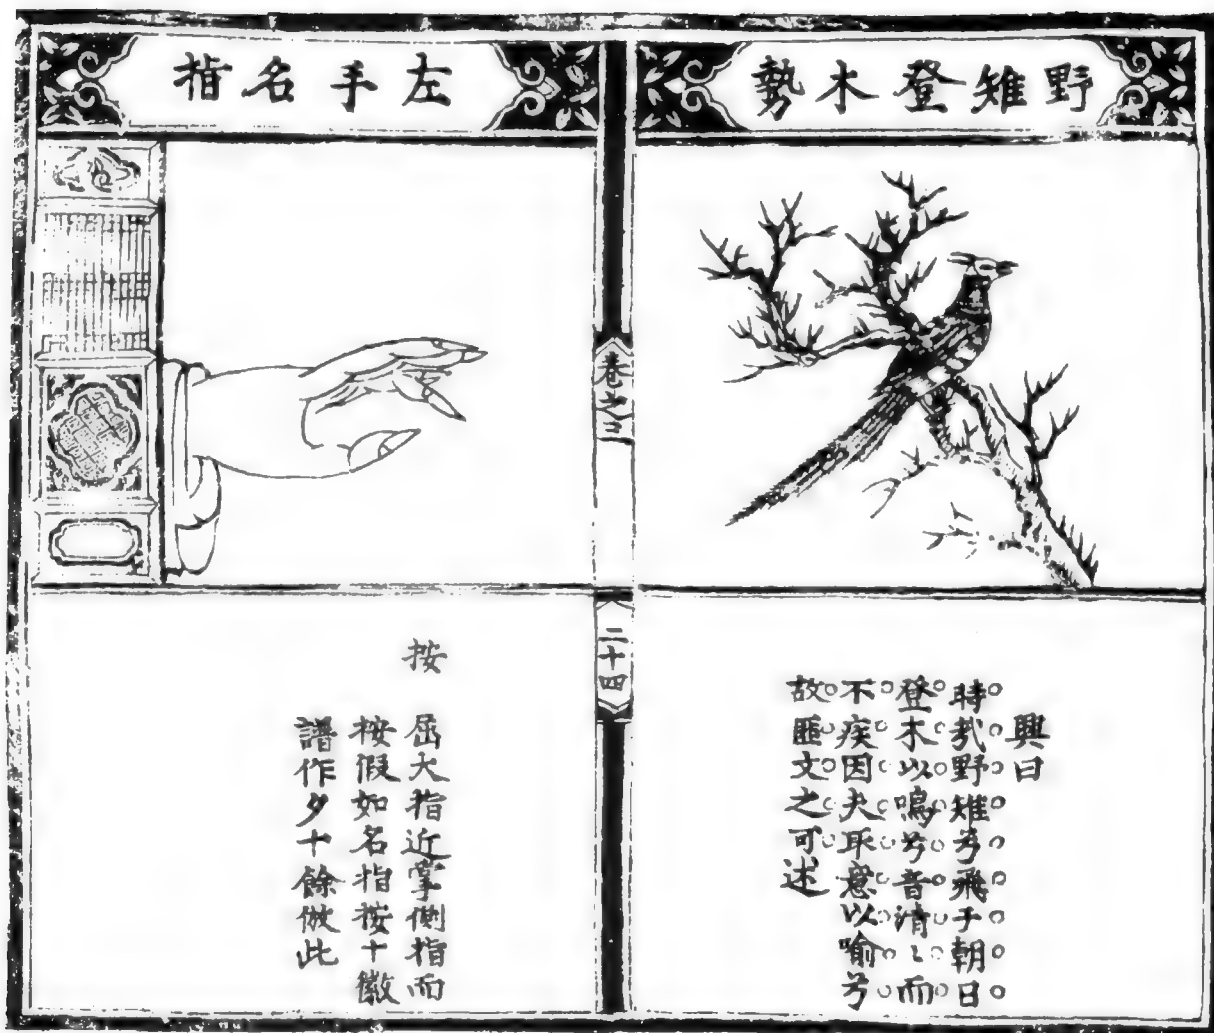 野雉登木勢
興曰
時哉野雉兮飛于朝日
登木以鳴兮音清〻而
不疾因夫取意以喻兮
故匪文之可述
卷之三
二十四
左手名指
按 屈大指近掌側指而
按假如名指按十徽
譜作夕十餘倣此